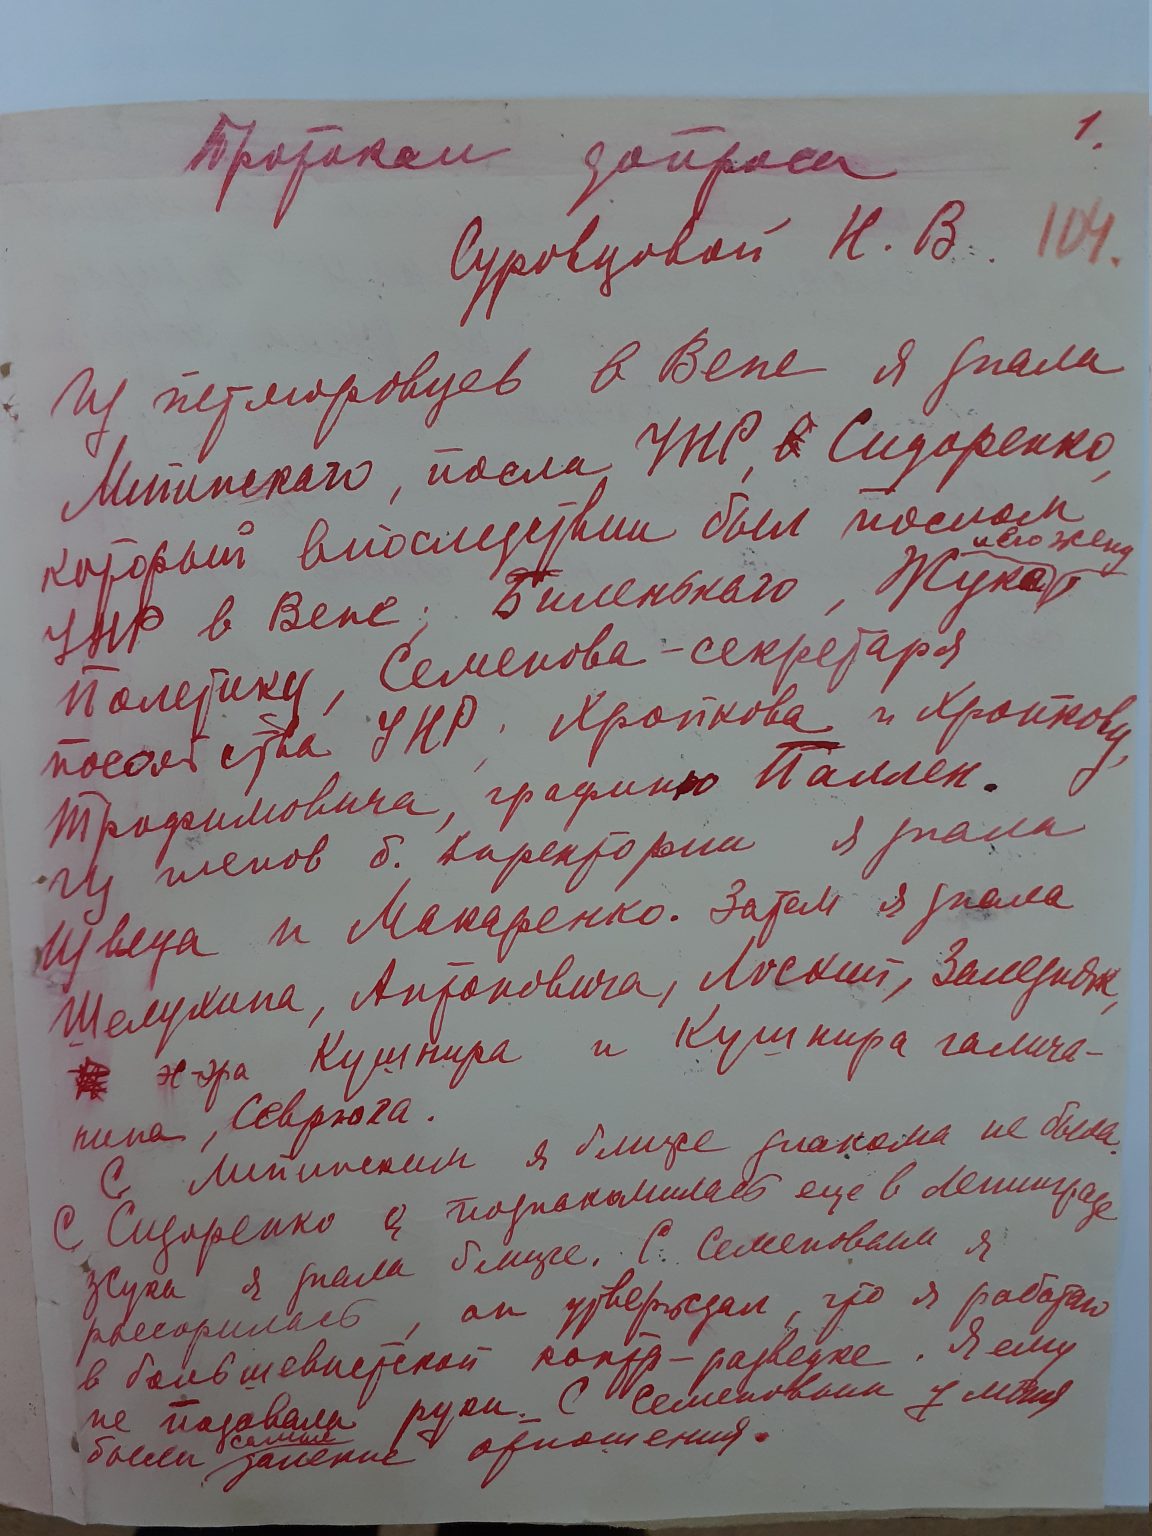 1.
Протокол допроса
Суровцовой Н. В.
104.
Из петлюровцев в Вене я знала
Липинскаго, посла УНР, Сидоренко,
который впоследствии был послом
УНР в Вене, Биленькаго, Жука и его жену
Полетику, Семенова - секретаря
посольства УНР, Храпкова и Храпкову,
Трофимовича, графиню Паллек.
Из членов б. Директории я знала
Швеца и Макаренко. Затем я знала
Шелухина, Антоновича, Лоский,
Кушнира и Кушнира галича-
нина, Севрюка.
С Липинским я ближе знакома не была.
С Сидоренко я познакомилась еще в Ленинграде
Жука я знала ближе. С Семеновым я
рассорилась, он утверждал, что я работаю
в большевистской контр-разведке. Я ему
не подавала руки. С Семеновым у меня
были самые отношения.